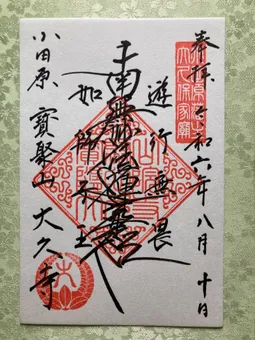 奉拝 令和六年八月十日
小田原藩主
大久保家廟
遊行無畏
南無妙法蓮華経
如師子王
小田原 寶聚山 大久寺